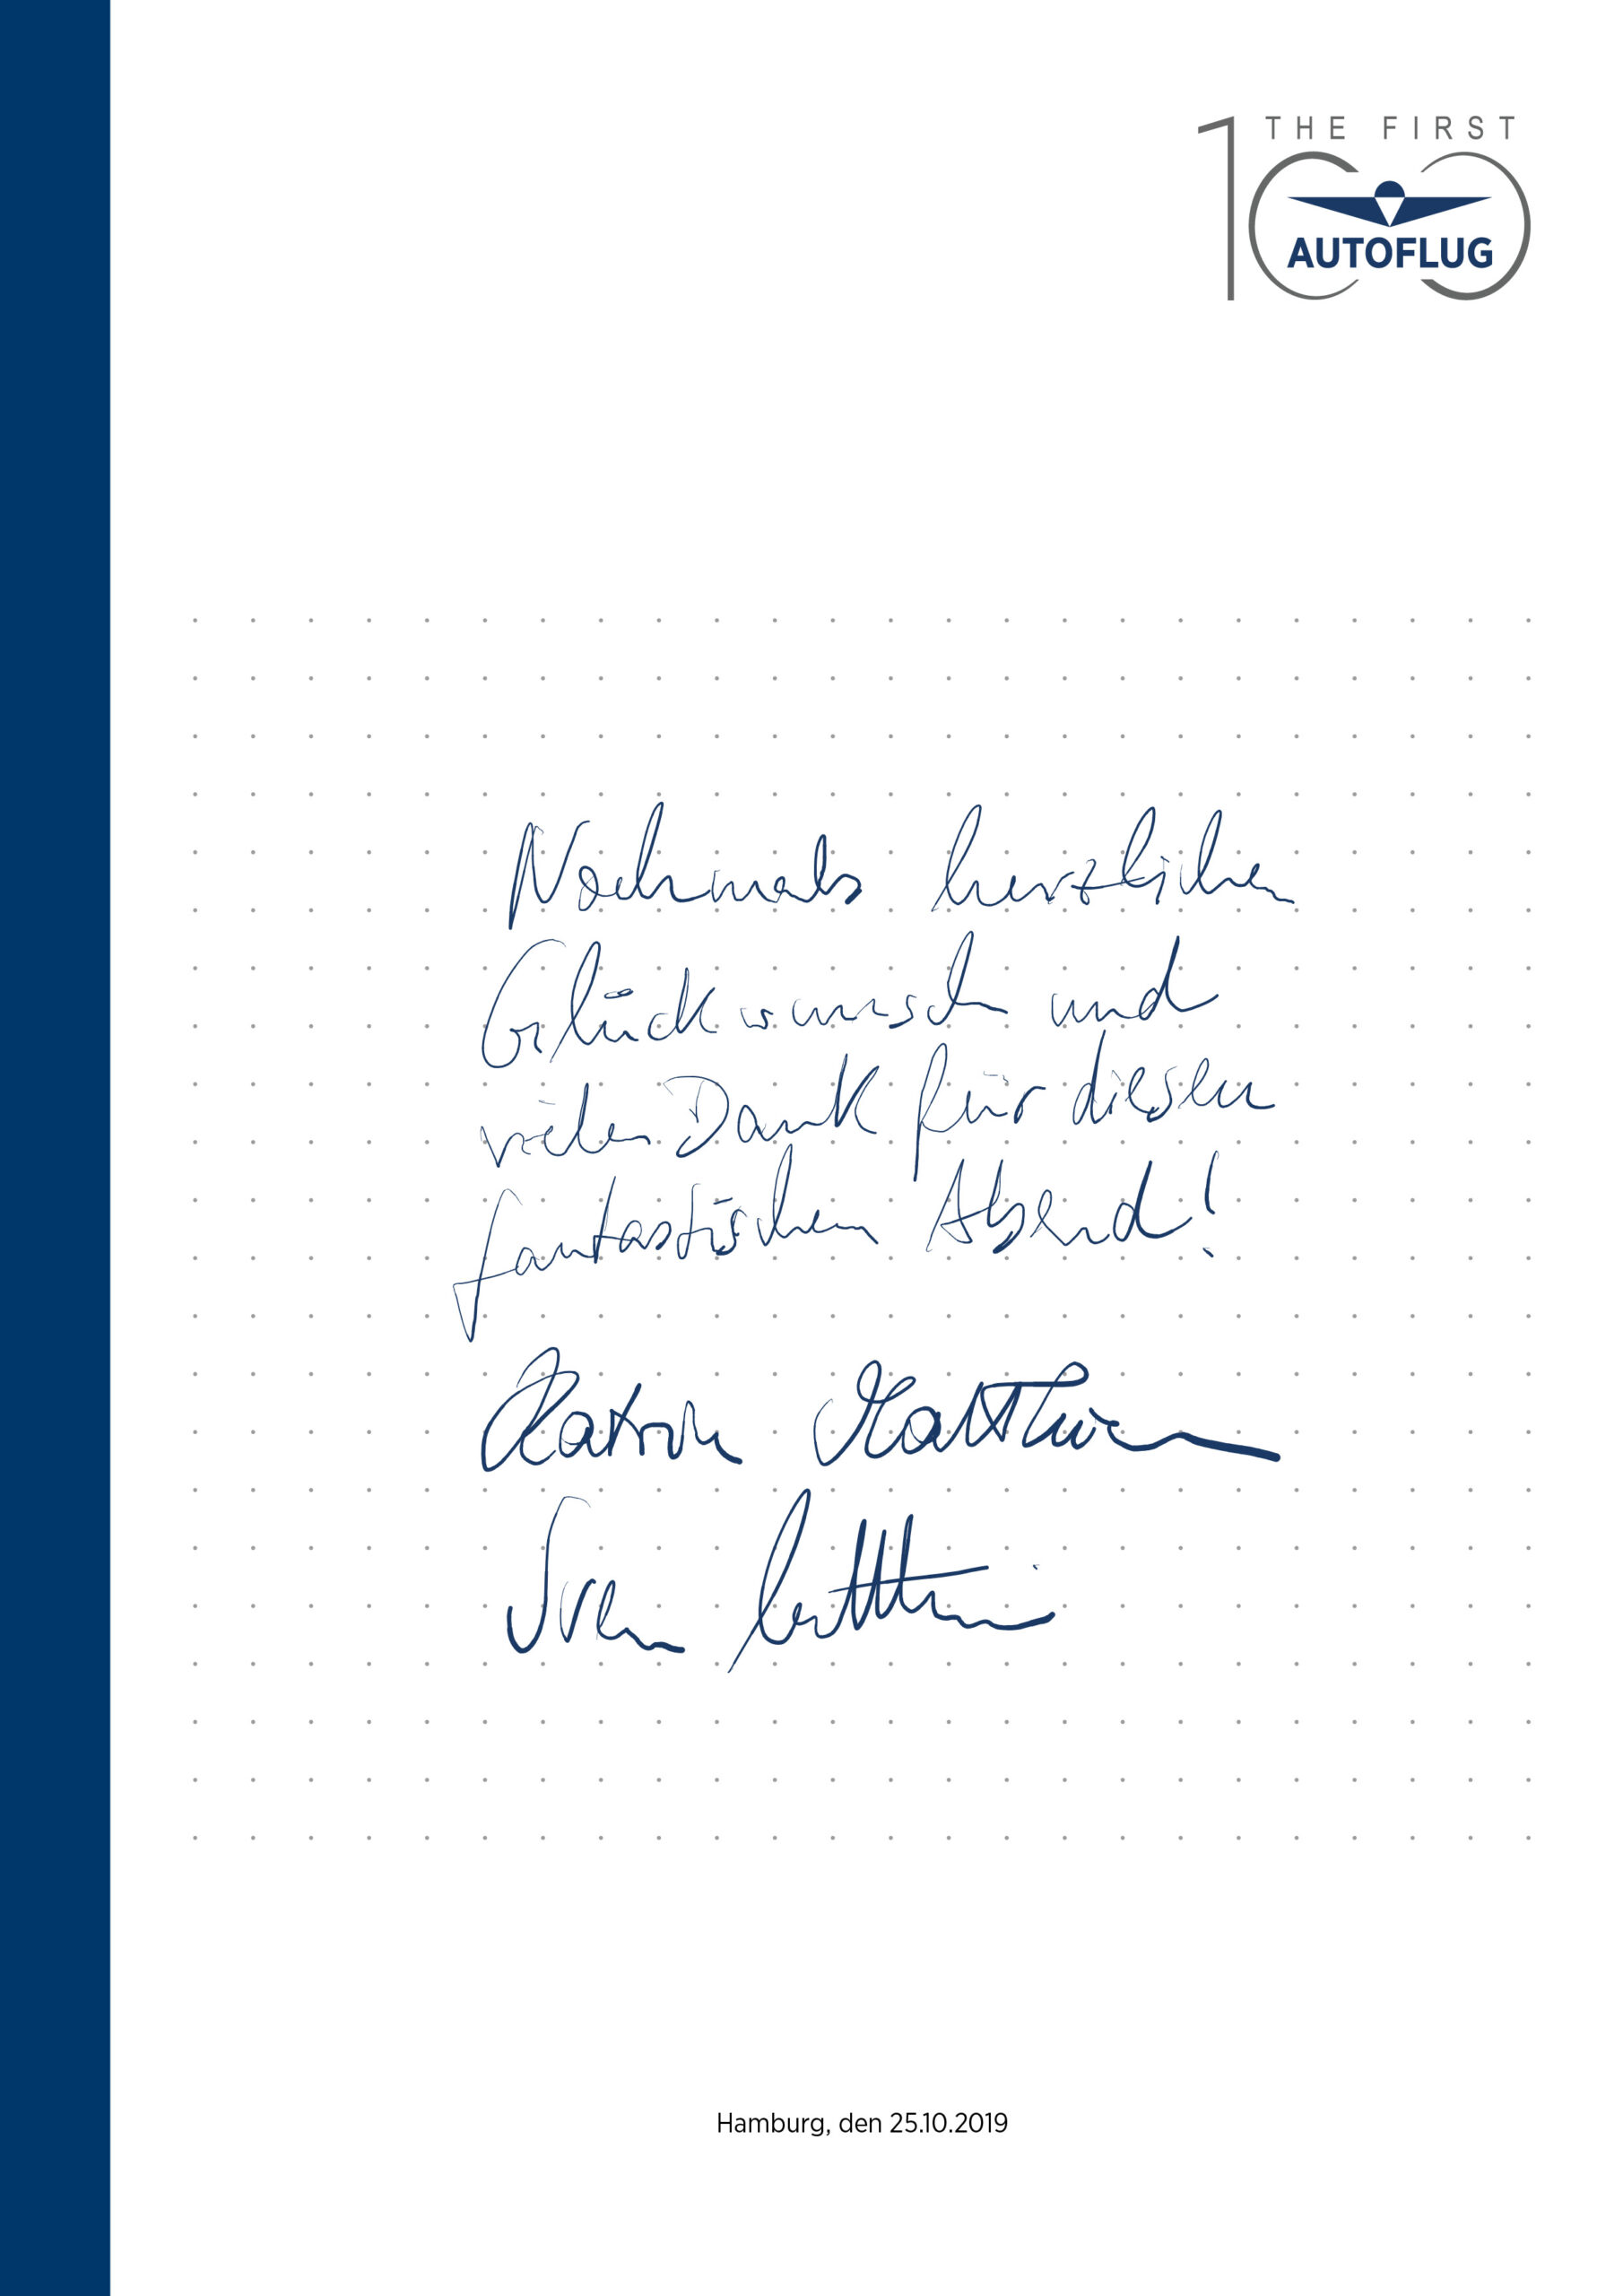 THE FIRST
100
AUTOFLUG
Nochmals herzlichen
Glückwunsch und
vielen Dank für diesen
fantastischen Abend!
Katrin
Sven
Hamburg, den 25.10.2019